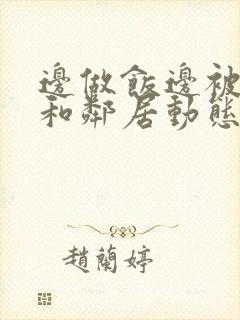 邊做飯邊被
和鄰居動態
趙蘭婷